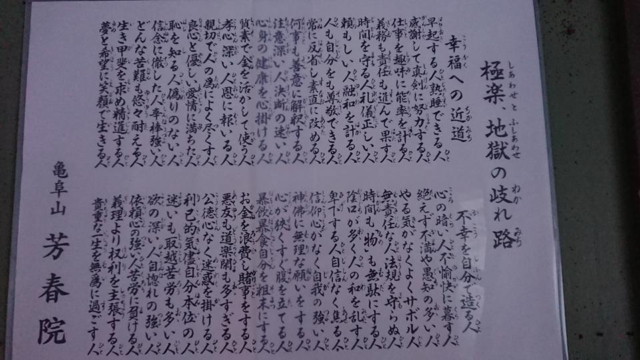 極楽、地獄の岐れ路
しあわせと ふしあわせ わか みち
幸福への近道
早起する人熟睡できる人
感謝して真剣に努力する人
仕事を趣味に能率を計る人
義務も責任も進んで果す人
時間を守る人礼儀正しい人
頼もしい人融和を計る人
人も自分をも尊敬できる人
常に反省し素直に改める人
何事も善意に解釈する人
注意深い人決断の速い人
心身の健康を心掛ける人
質素で金を活かして使う人
孝心深い人恩に報いる人
親切で人の為によく尽くす人
良心と優しい愛情に満ちた人
恥を知る人偽りのない人
信念に徹した人辛棒強い人
どんな苦難も悠々耐える人
生き甲斐を求め精進する人
夢と希望に笑顔で生きる人
不幸を自分で造る人
心の暗い人不愉快に暮す人
絶えず不満や愚知の多い人
やる気がなくよくサボル人
無責任な人法規を守らぬ人
時間も物も無駄にする人
陰口が多く人の和を乱す人
卑下する人自信なく焦る人
信仰心なく自我の強い人
神佛に無理な願いをする人
心が狭くすぐ腹を立てる人
暴飲暴食自分を粗末にする人
お金を浪費し賭事をする人
悪友も道楽も多すぎる人
公徳心なく迷惑を掛ける人
利己的気儘自分本位の人
迷いも取越苦労も多い人
欲の深い人自惚れの強い人
依頼心の強い人苦労に負ける人
義理より权利を主張する人
貴重な一生を無為に過ごす人
亀阜山 芳春院